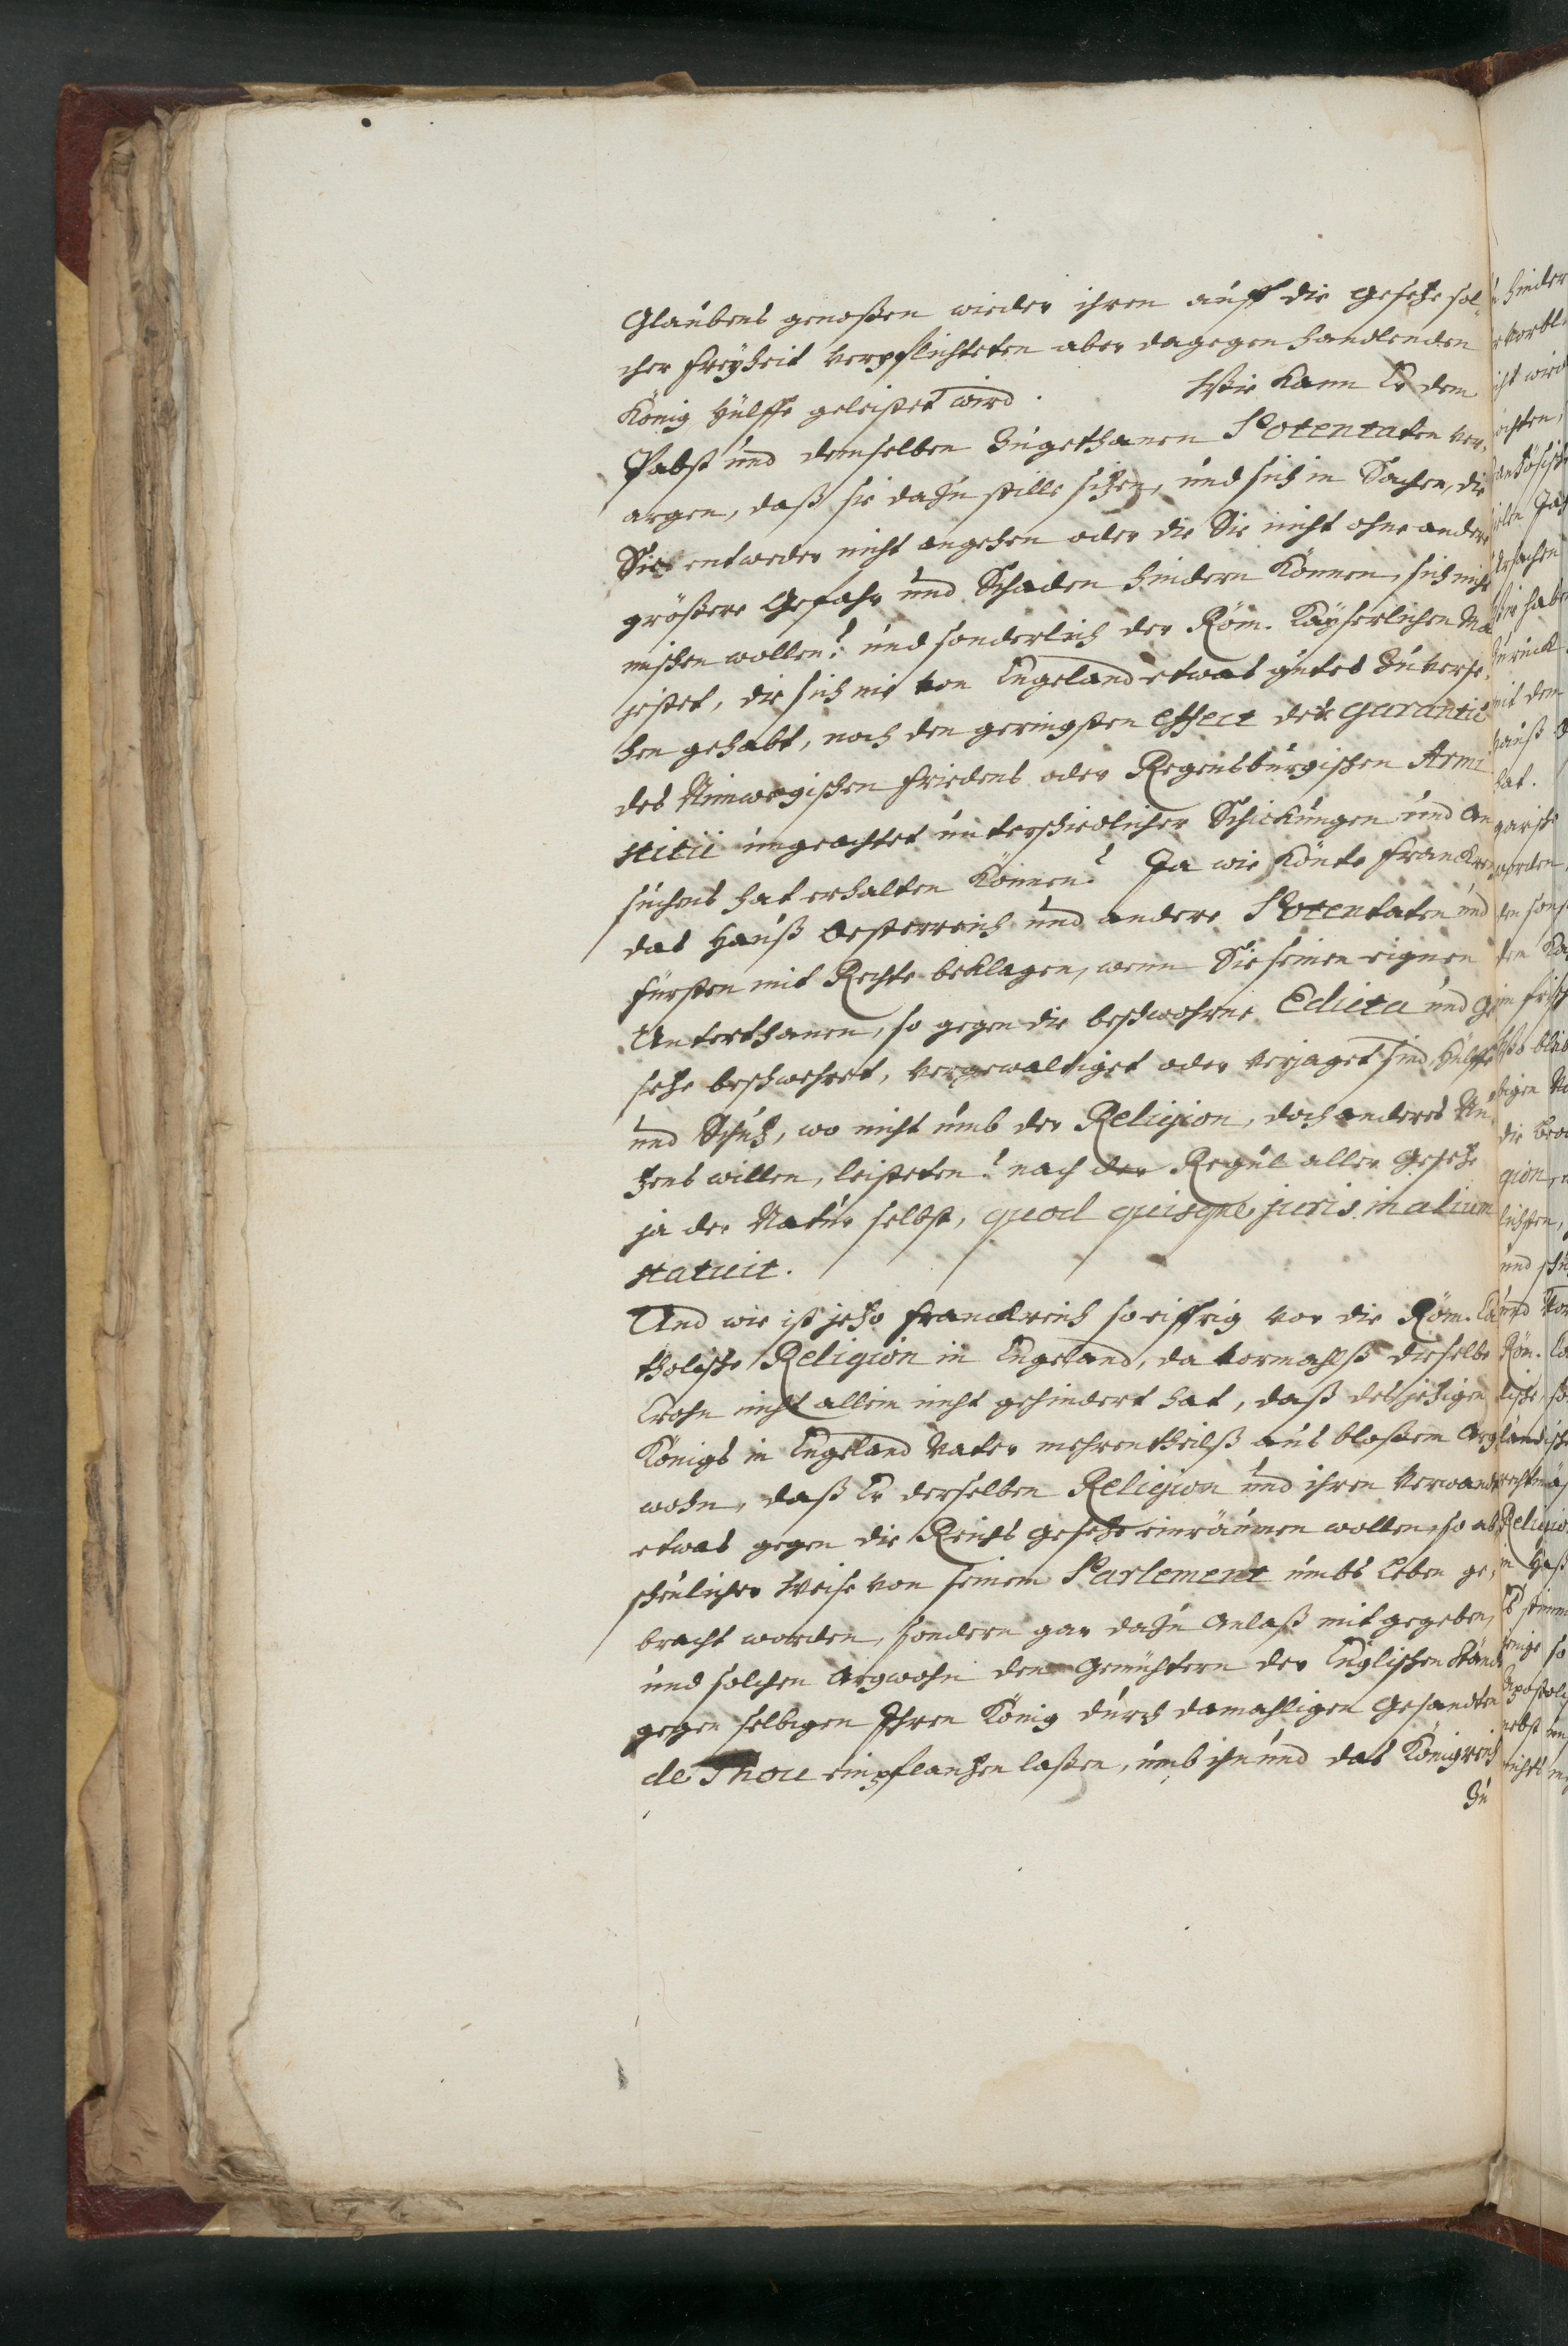 Glaubens genoßen wieder ihren auff die gesetze sol-
cher freyheit verpflichteten aber dagegen handlenden
König Hülffe geleistet wird. Wie kann Er dem
Pabst und demselben zugethanen Potentaten ver-
argen, daß sie dazu stille sitzen, und sich in Sachen, die
Sie entweder nicht angehen oder die Sie nicht ohne andere
größere Gefahr und Schaden hindern können, sich nicht
mischen wollen? und sonderlich der Röm. Kayserlichen Ma
jestet, die sich nie von Engeland etwas gutes zu verse-
hen gehabt, noch den geringsten effect der garantie
des Nimwegischen friedens oder Regensburgischen Armi
stitii ungeachtet unterschiedlicher Schickungen und An
suchens hat erhalten können? Ja wie könte Franckreich
das Hauß Oesterreich und andere Potentaten und
fürsten mit Rechte beklagen, wenn Sie seinen eignen
Unterthanen, so gegen die beschwohrne Edicta und Ge
setze beschwehret, vergewaltiget oder verjaget sind, Hülffe
und Schutz, wo nicht umb der Religion, doch anderes Nu-
tzens willen, leisteten? nach der Regul aller gesetze
ja der Natur selbst, quod quisque juris in alium
statuit.
Und wie ist jetzo Franckreich so eiffrig vor die Röm. Ca
tholische Religion in Engeland, da vormahlß dieselbe
Crohn nicht allein nicht gehindert hat, daß des jetzigen
Königs in Engeland Vater mehrentheilß aus bloßem Arg
wohn, daß Er derselben Religion und ihren Verwandten
etwas gegen die Reichs Gesetze einräumen wollen, so ab
scheulicher Weise von seinem Parlement umbs Leben ge-
bracht worden, sondern gar dazu Anlaß mit gegeben,
und solchen Argwohn den Gemühtern der Englischen Stände
gegen selbigen Ihren König durch damahligen Gesandten
de Thou einpflanzen laßen, umb ihn und das Königreich
zu